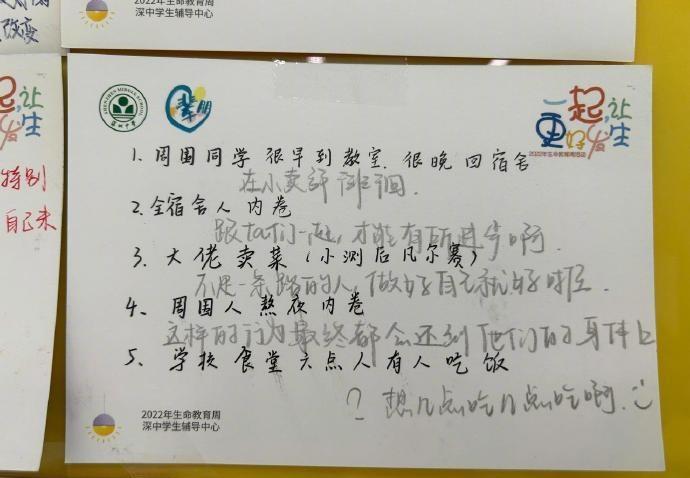 2022年生命教育周
深中学生辅导中心
改变
起,让
生
特别
自己来
SHENZHEN MIDDLE SCHOOL
深圳中学
辈朋
一起,让
更好发生
2022年生命教育周活动
1. 周围同学很早到教室.很晚回宿舍
在小卖部徘徊.
2. 全宿舍人内卷
跟他们一起,才能有所进步啊.
3. 大佬卖菜(小测后凡尔赛)
不是一条路的人,做好自己就好
4. 周围人熬夜内卷
这样的行为最终都会还到他们的身体上
5. 学校食堂六点人有人吃饭
? 想几点吃几点吃啊.
2022年生命教育周
深中学生辅导中心